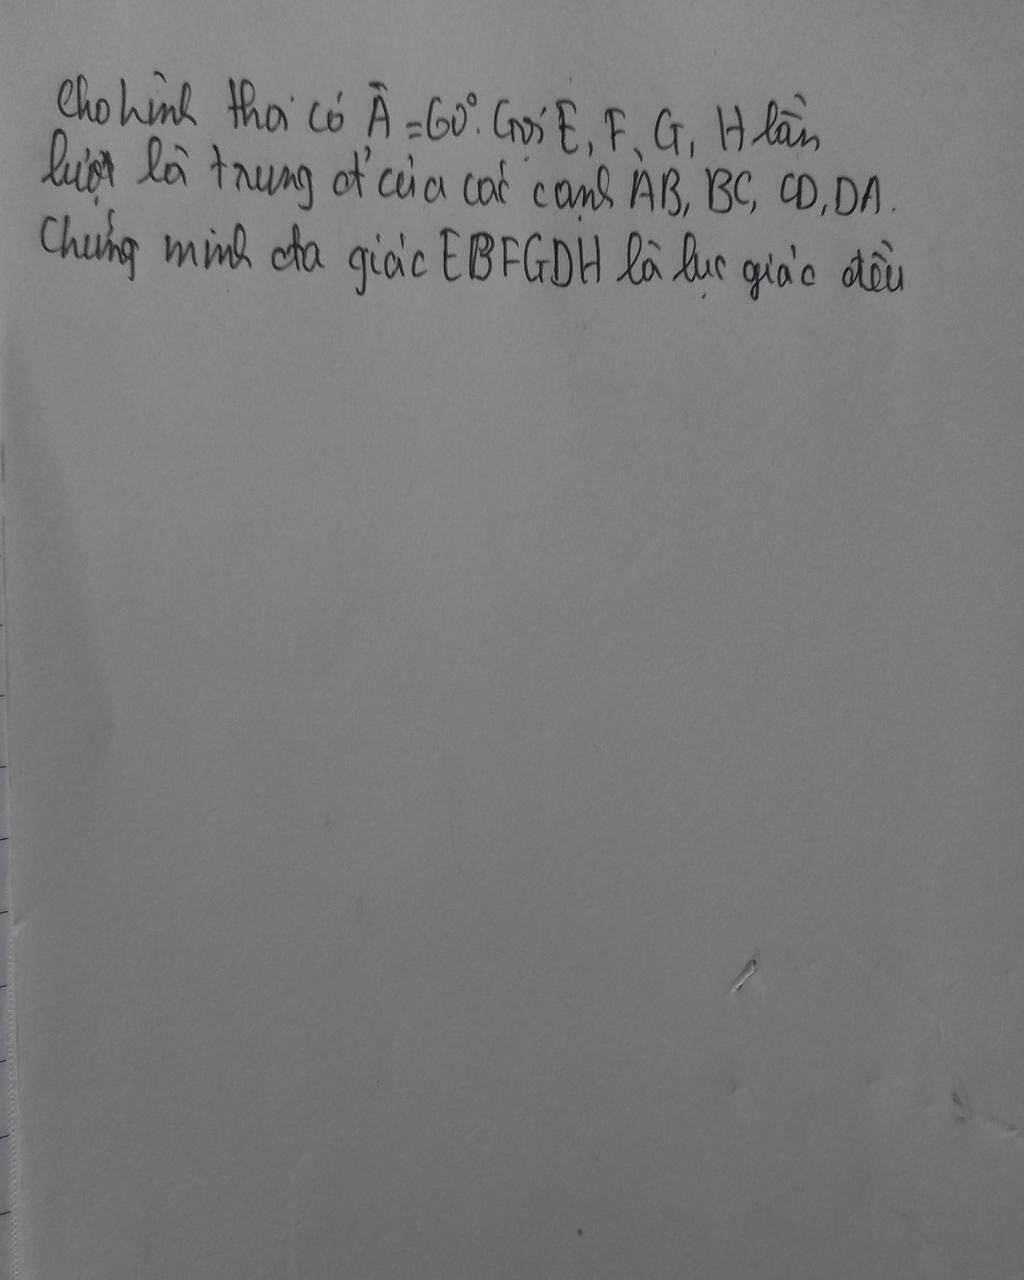 Cho hình thoi có Â = 60°. Gọi E, F, G, H lần
lượt là trung đ' của các cạnh AB, BC, CD, DA.
Chứng minh đa giác EBFGDH là lục giác đều